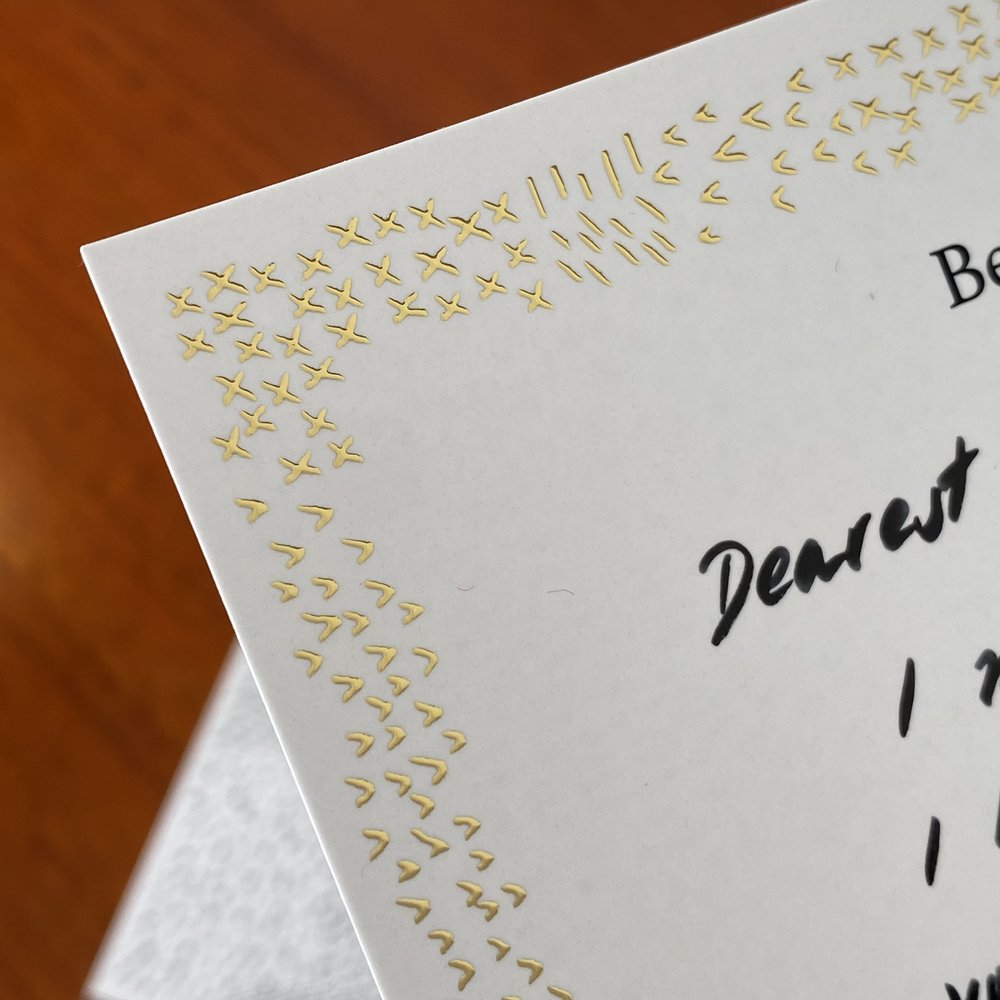 Be
Dearest
I
I